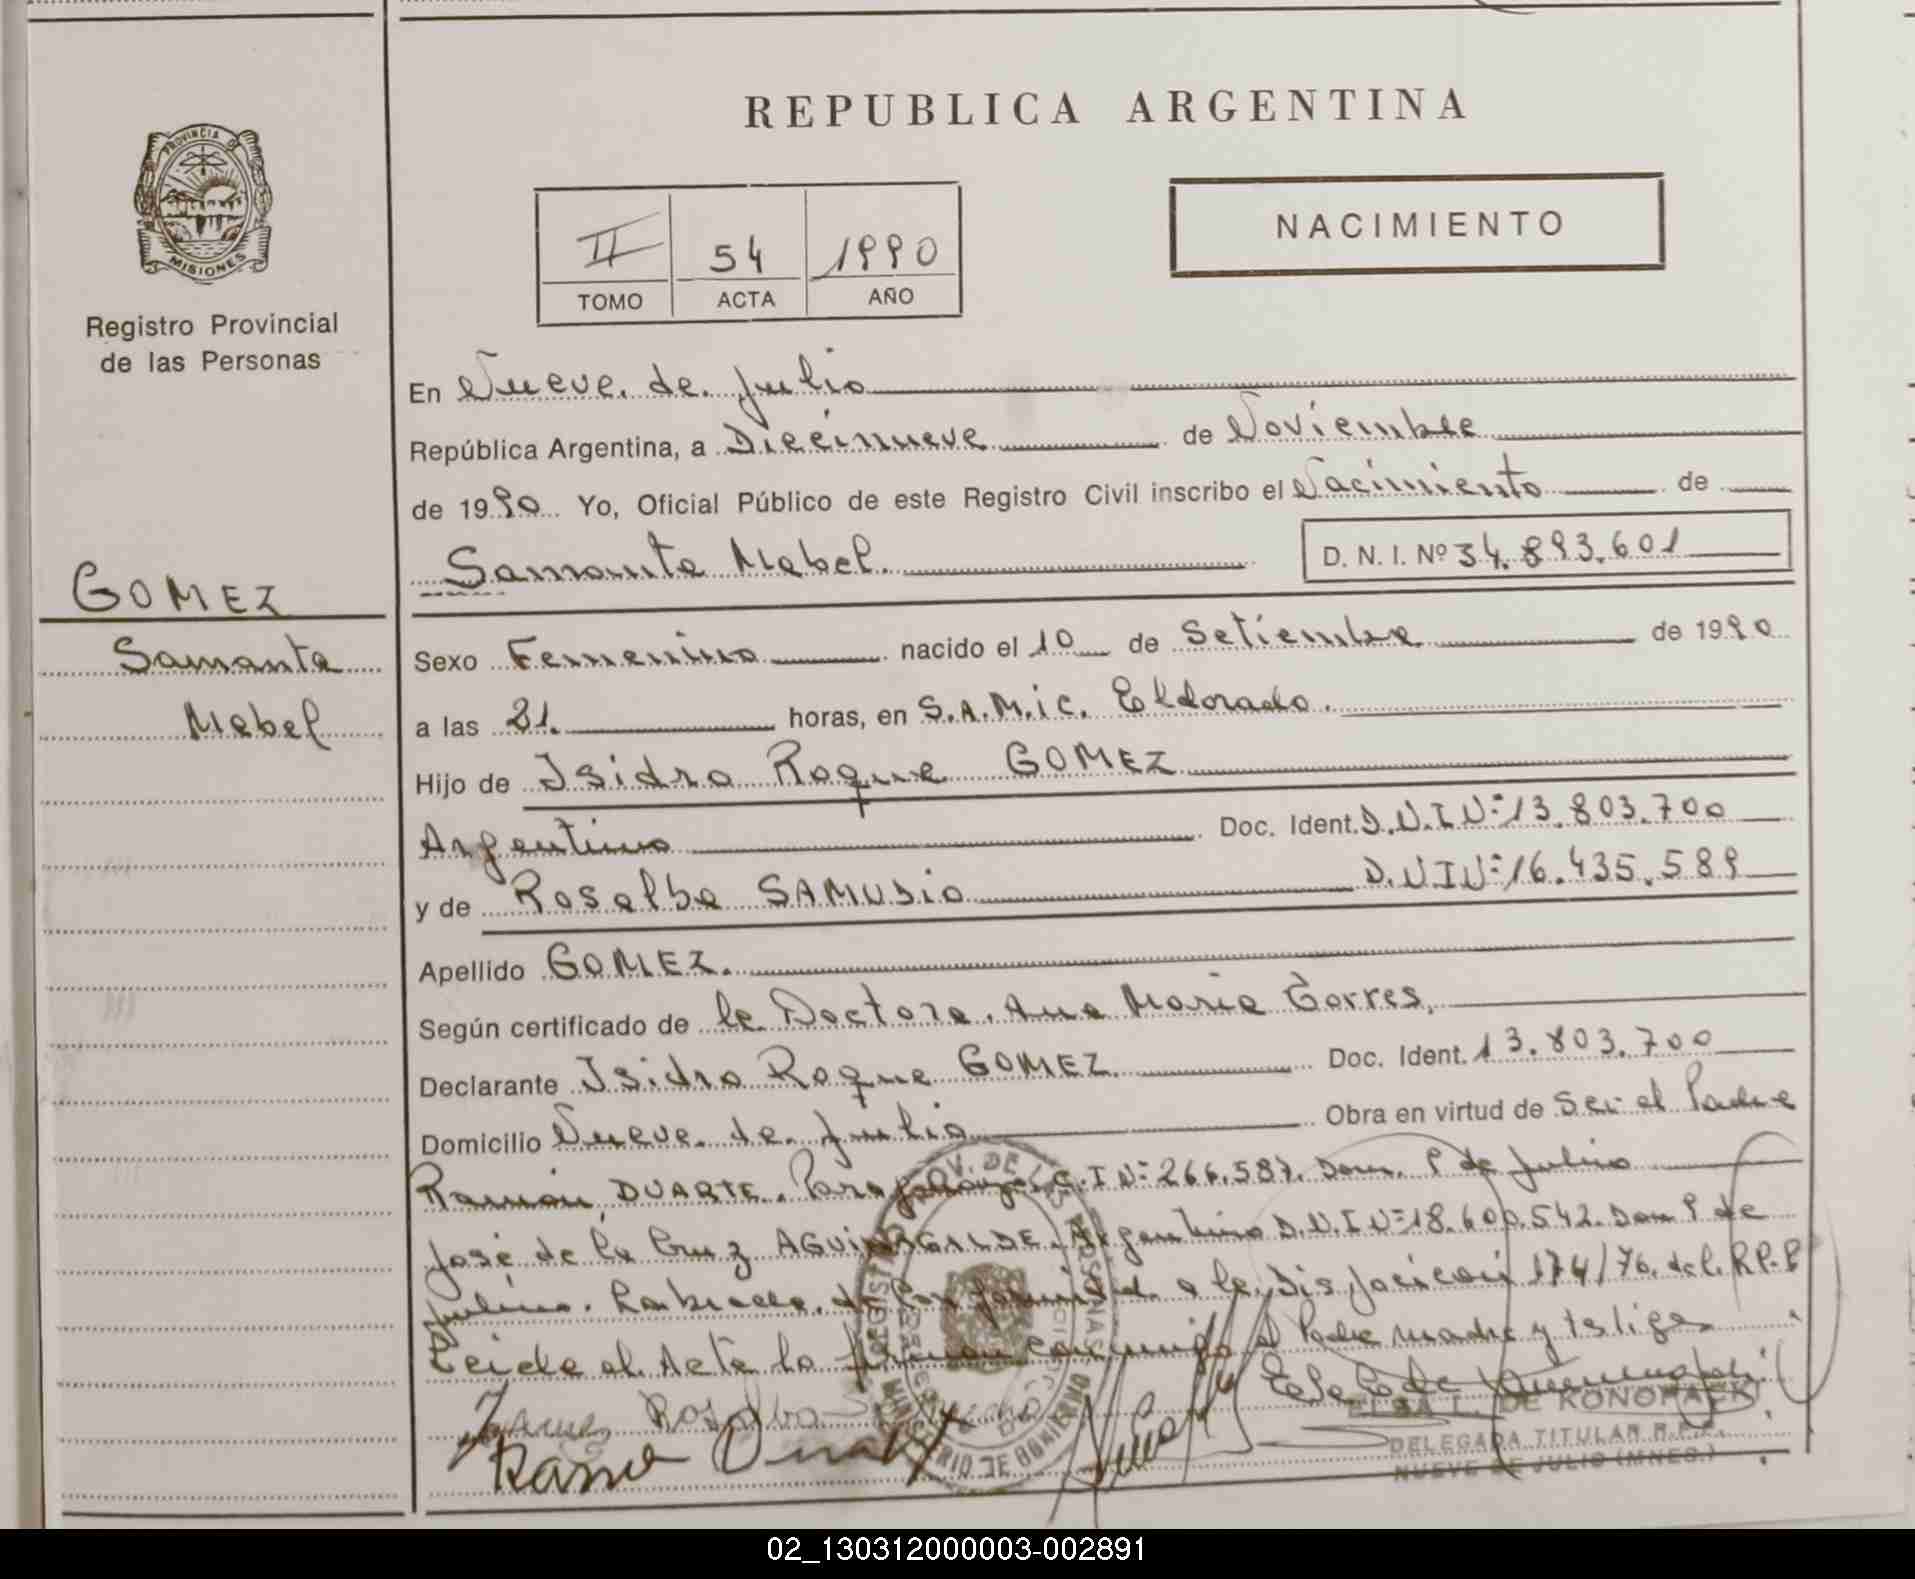 REPUBLICA ARGENTINA
PROVINCIA D
MISIONES
Registro Provincial
de las Personas
II 54 1990
TOMO ACTA AÑO
NACIMIENTO
En Nueve de Julio
República Argentina, a Diecinueve de Noviembre
de 1990 Yo, Oficial Público de este Registro Civil inscribo el Nacimiento de
Samanta Mabel. D. N. I. Nº 34.893.601
GOMEZ
Samanta
Mabel
Sexo Femenino nacido el 10 de Setiembre de 1990
a las 21. horas, en S.A.M.ic. Eldorado.
Hijo de Isidro Roque GOMEZ
Argentino Doc. Ident. D.N.I Nº 13.803.700
y de Rosalba SAMUDIO D.N.I Nº 16.435.589
Apellido GOMEZ.
Según certificado de la Doctora. Ana Maria Torres,
Declarante Isidro Roque GOMEZ Doc. Ident. 13.803.700
Domicilio Nueve de Julio Obra en virtud de Ser el Padre
Ramón DUARTE. Paraguayo C.I Nº 266.587. Dom. 9 de Julio
José de la Cruz Argentino D.N.I Nº 18.600.542. Dom 9 de
Julio. Labrada de conformidad a la Disposición 174/76. del. R.P.P
Leida el Acta la firman conmigo el Padre madre y testigos
Rosalba
Ramon Duarte
MINISTERIO DE GOBIERNO
ELSA L. DE KONOPACKI
DELEGADA TITULAR R.P.P.
NUEVE DE JULIO (MNES.)
02_130312000003-002891